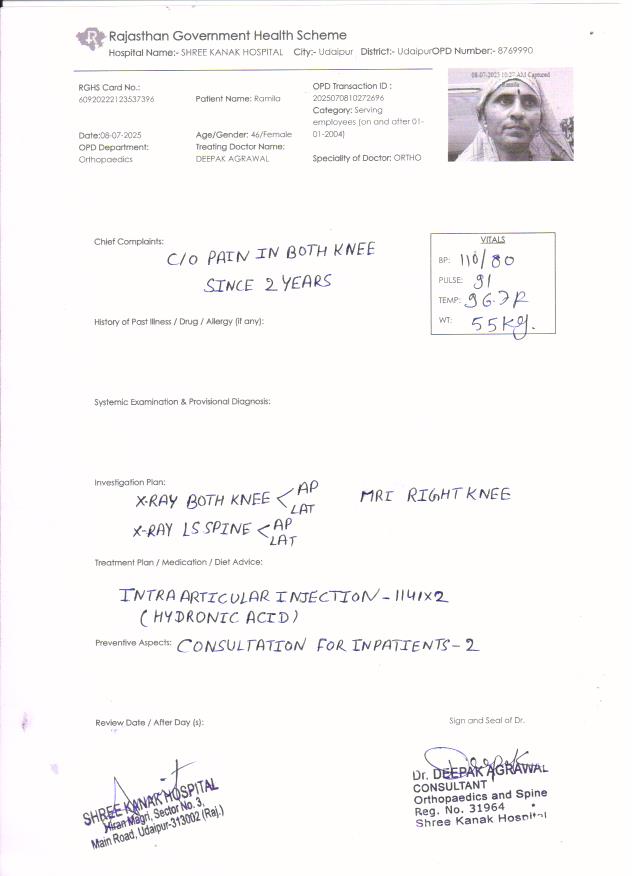 Rajasthan Government Health Scheme
Hospital Name:- SHREE KANAK HOSPITAL City:- Udaipur District:- UdaipurOPD Number:- 8769990
RGHS Card No.:
60920222123537396
Patient Name: Ramila
OPD Transaction ID :
2025070810272696
Category: Serving
employees (on and after 01-
01-2004)
Date:08-07-2025
OPD Department:
Orthopaedics
Age/Gender: 46/Female
Treating Doctor Name:
DEEPAK AGRAWAL
Speciality of Doctor: ORTHO
08-07-2025 10:27 AM Captured
Ramila
Chief Complaints:
C/O PAIN IN BOTH KNEE
SINCE 2 YEARS
VITALS
BP: 110/80
PULSE: 91
TEMP:
WT: 55Kg.
History of Past Illness / Drug / Allergy (if any):
Systemic Examination & Provisional Diagnosis:
Investigation Plan:
X-RAY BOTH KNEE < AP LAT MRI RIGHT KNEE
X-RAY LS SPINE < AP LAT
Treatment Plan / Medication / Diet Advice:
INTRA ARTICULAR INJECTION - 1141X2
(HYDRONIC ACID)
Preventive Aspects: CONSULTATION FOR INPATIENTS - 2
Review Date / After Day (s):
Sign and Seal of Dr.
SHREE KANAK HOSPITAL
Hiran Magri, Sector No. 3,
Main Road, Udaipur-313002 (Raj.)
Dr. DEEPAK AGRAWAL
CONSULTANT
Orthopaedics and Spine
Reg. No. 31964
Shree Kanak Hospital